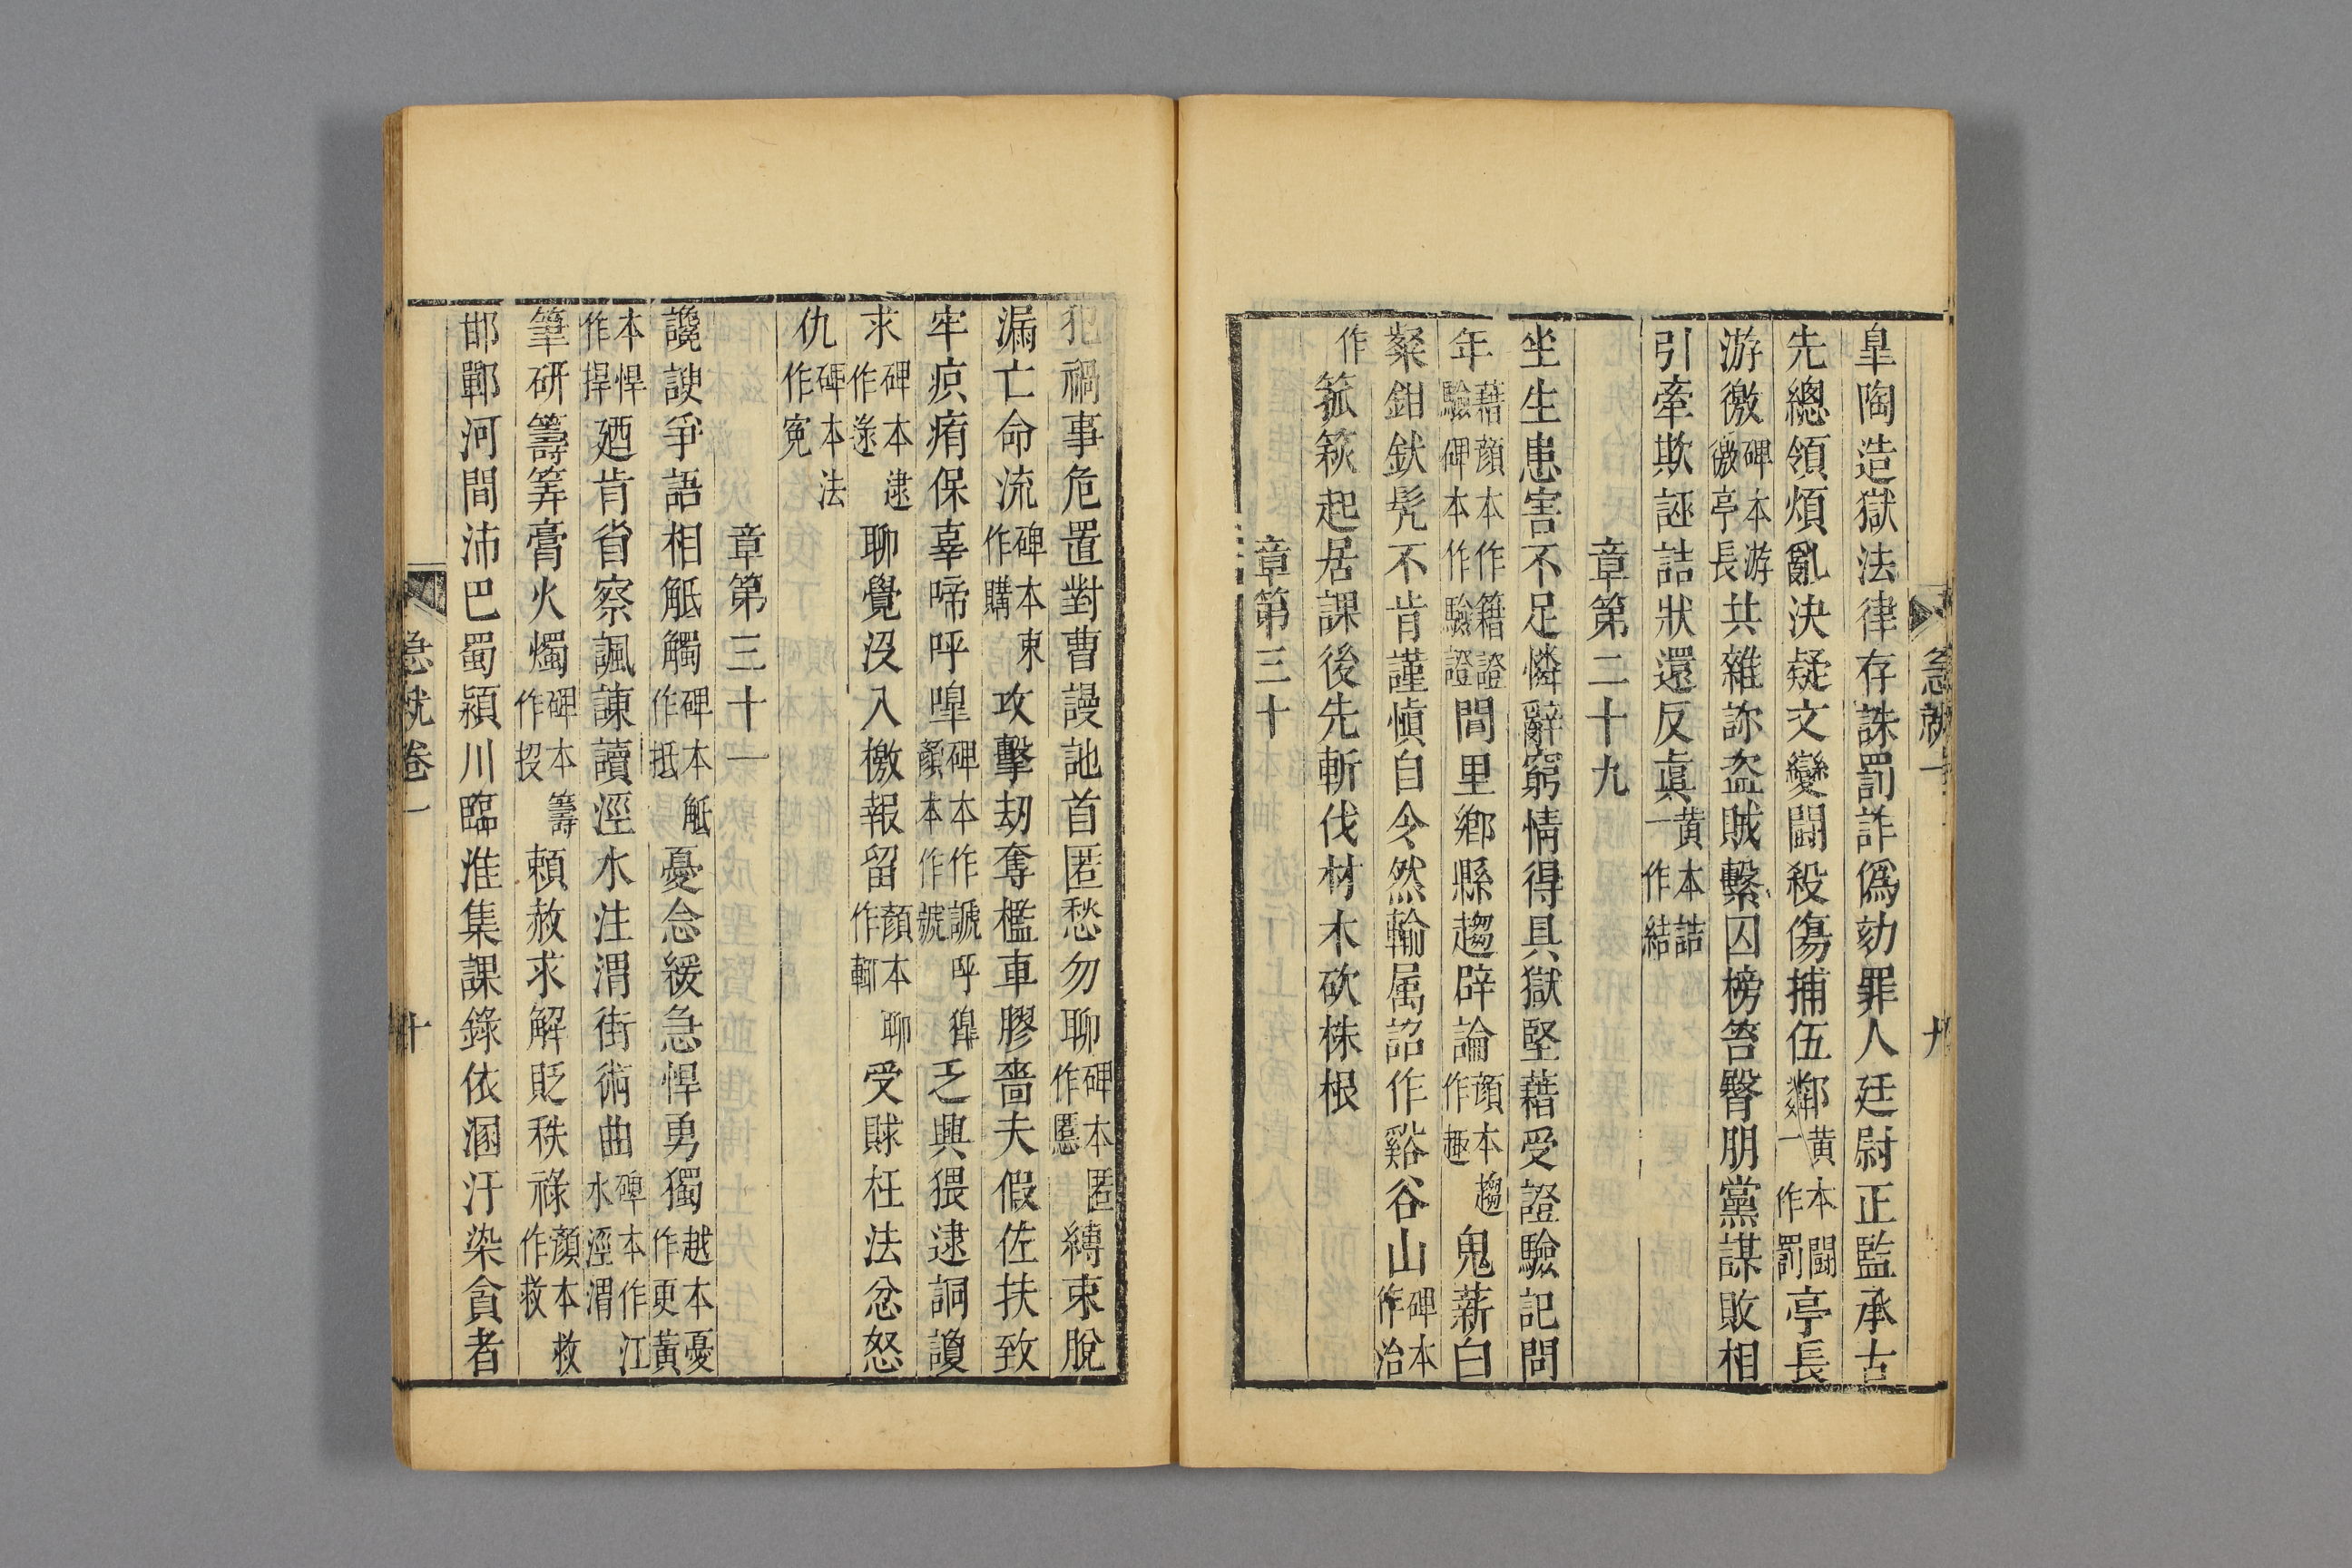 皐陶造獄法律存誅罰詐僞劾罪人廷尉正監承古
先總領煩亂決疑文變鬪殺傷捕伍鄰黄本鬪一作罰亭長
游徼碑本游徼亭長共雜診盜賊繫囚榜笞臀朋黨謀敗相
引牽欺誣詰狀還反真黄本詰一作結
章第二十九
坐生患害不足憐辭窮情得具獄堅藉受證驗記問
年藉顔本作籍證驗碑本作驗證閭里鄉縣趨辟論顔本趨作趣鬼薪白
粲鉗釱髡不肯謹愼自令然輸属詔作谿谷山碑本作治
作箛篍起居課後先斬伐材木砍株根
章第三十
犯禍事危置對曹謾訑首匿愁勿聊碑本匿作慝縛束脫
漏亡命流碑本束作購攻擊刼奪檻車膠嗇夫假佐扶致
牢疻痏保辜啼呼嘷碑本作謕呼獋顏本作號乏興猥逮詗讂
求碑本逮作逯聊覺没入檄報留顏本聊作輒受賕枉法忿怒
仇碑本法作寃
章第三十一
讒諛爭語相觝觸碑本觝作抵憂念緩急悍勇獨越本憂作更黃
本悍作捍廼肯省察諷諫讀涇水注渭街術曲碑本作江水涇渭
筆研籌筭膏火燭碑本籌作投賴赦求解貶秩祿顏本救作赦
邯鄲河間沛巴蜀潁川臨淮集課錄依溷汙染貪者
急就卷一
十